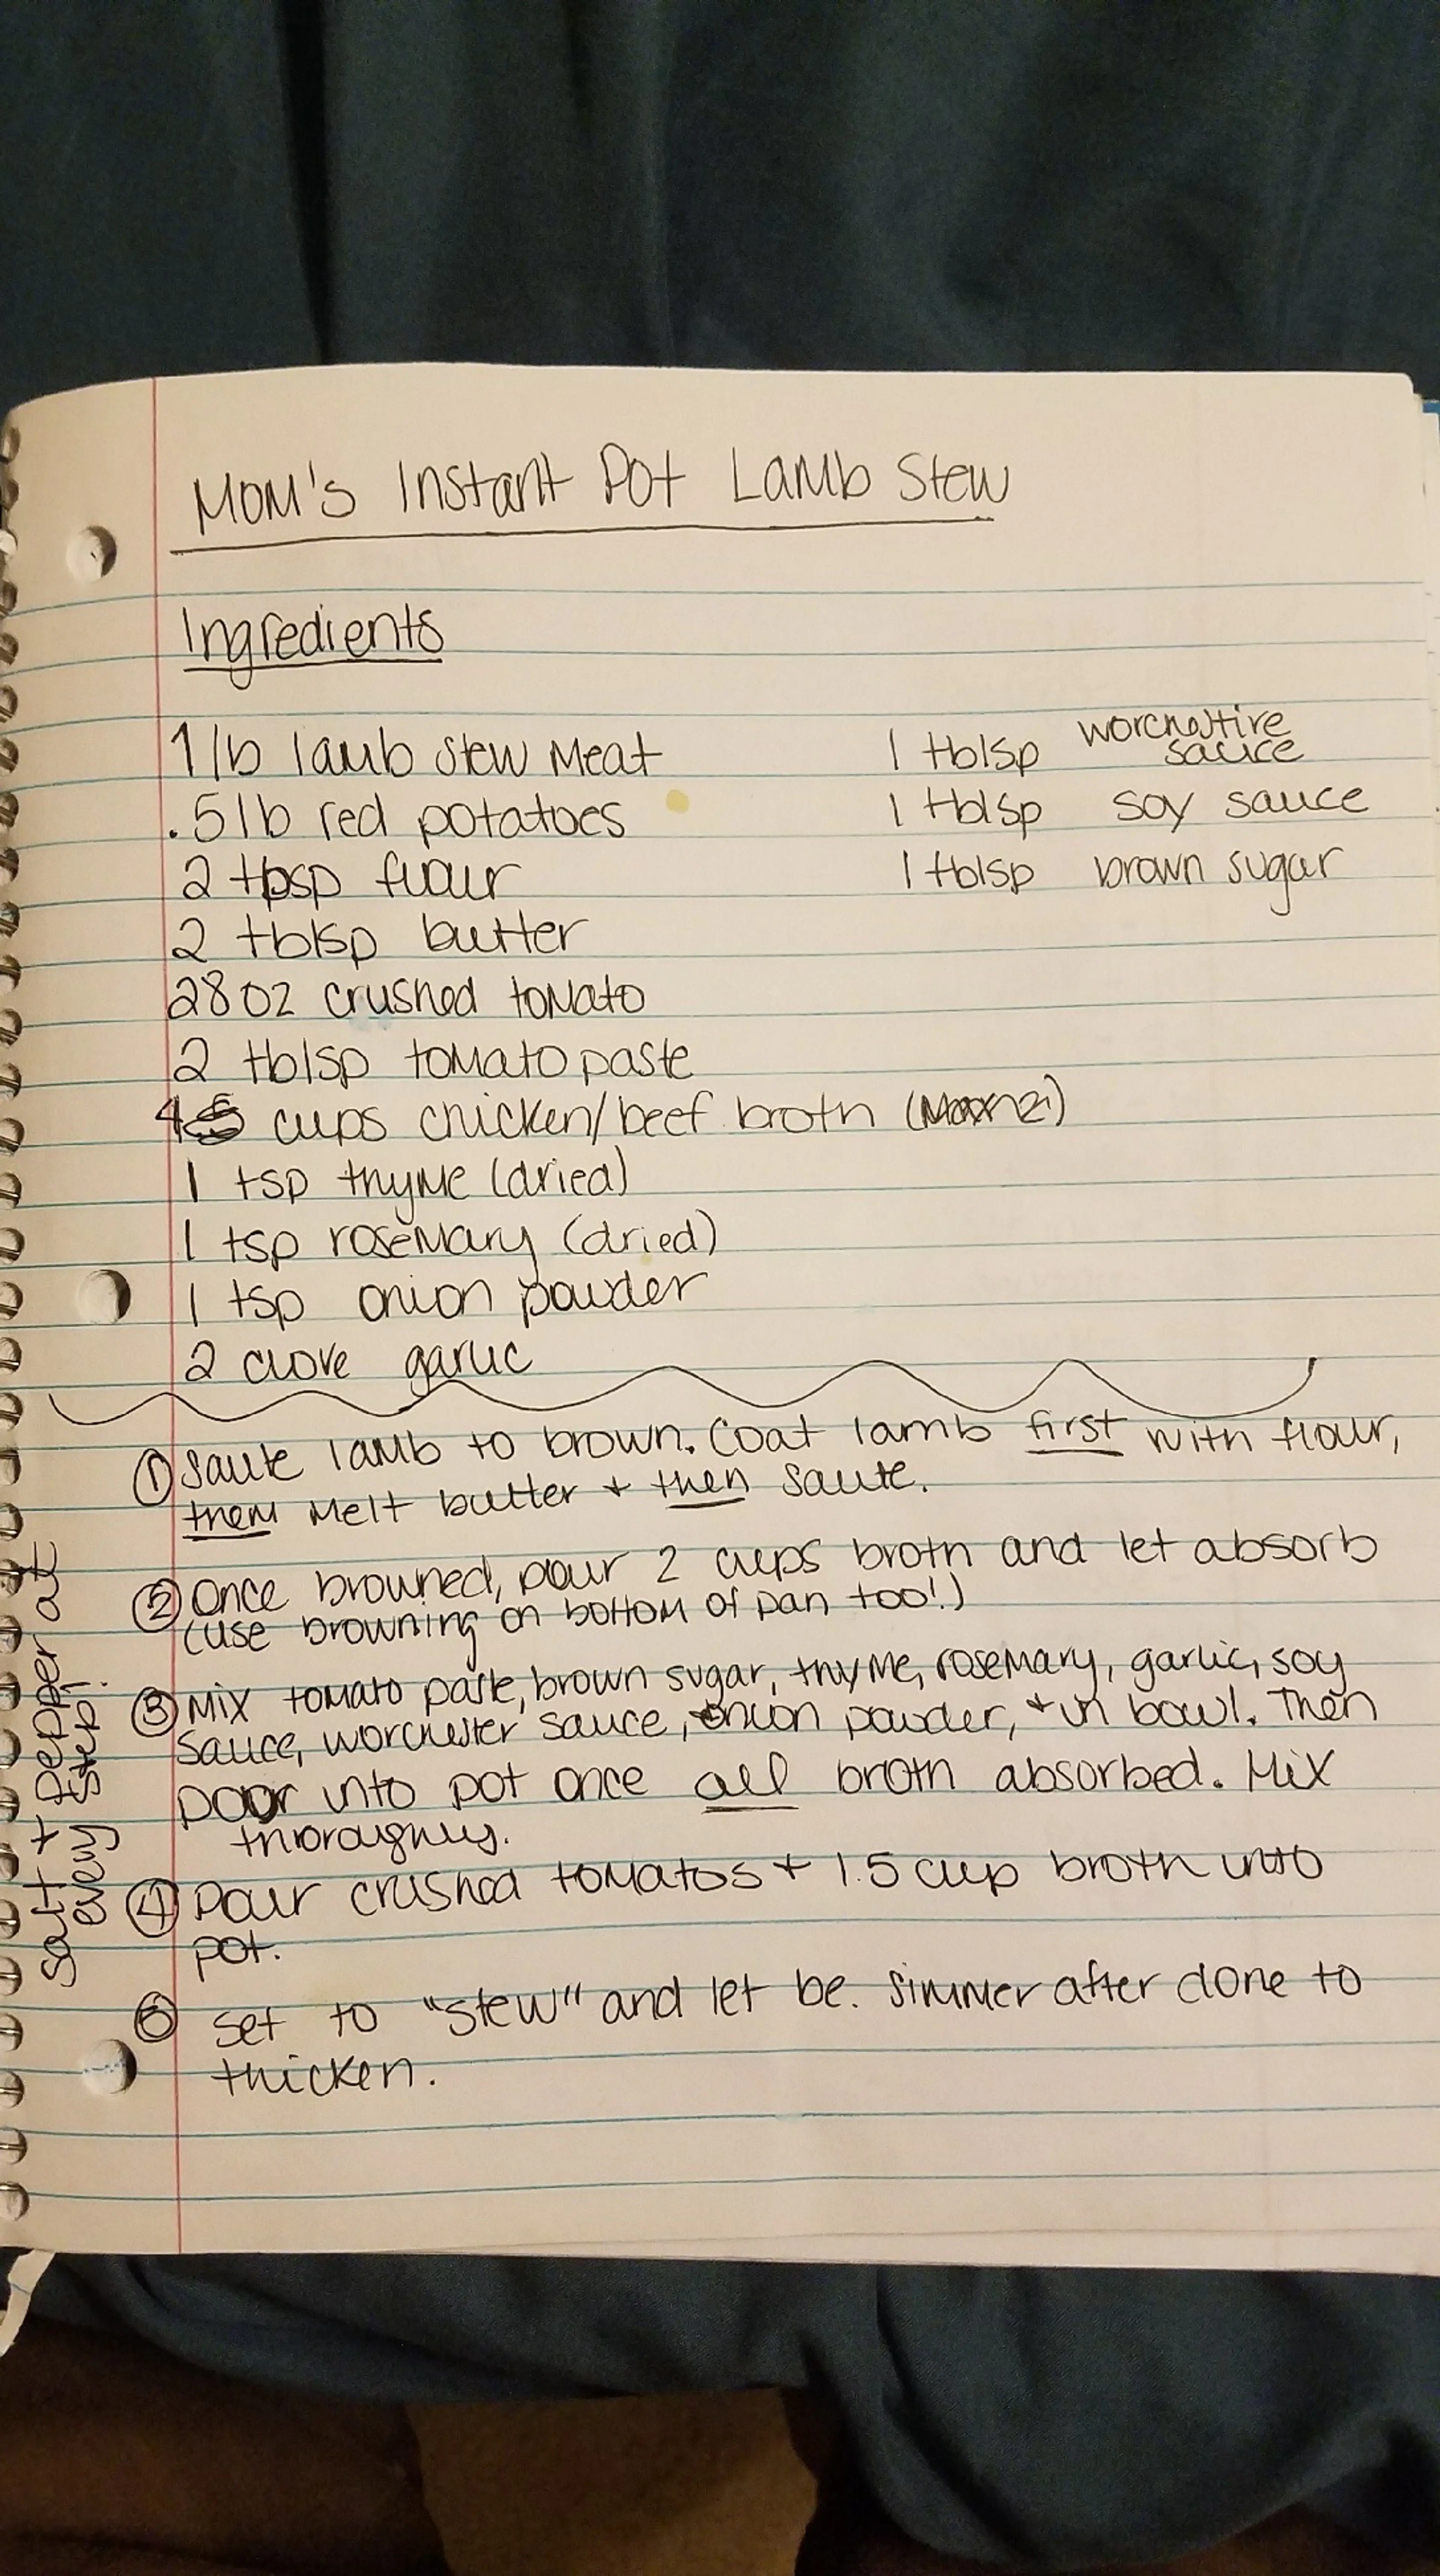 Mom's Instant Pot Lamb Stew
Ingredients
1 lb lamb stew meat
.5 lb red potatoes
2 tbsp flour
2 tblsp butter
28 oz crushed tomato
2 tblsp tomato paste
4 cups chicken/beef broth
1 tsp thyme (dried)
1 tsp rosemary (dried)
1 tsp onion powder
2 clove garlic
1 tblsp
sauce
1 tblsp soy sauce
1 tblsp brown sugar
① Saute lamb to brown. Coat lamb first with flour,
them melt butter + then saute.
② Once browned, pour 2 cups broth and let absorb
(use browning on bottom of pan too!)
③ Mix tomato paste, brown sugar, thyme, rosemary, garlic, soy
sauce, worchester sauce, onion powder, + in bowl. Then
poor into pot once all broth absorbed. Mix
thoroughly.
④ Pour crushed tomatos + 1.5 cup broth into
pot.
⑤ Set to "stew" and let be. Simmer after done to
thicken.
Salt + Pepper at
every step!